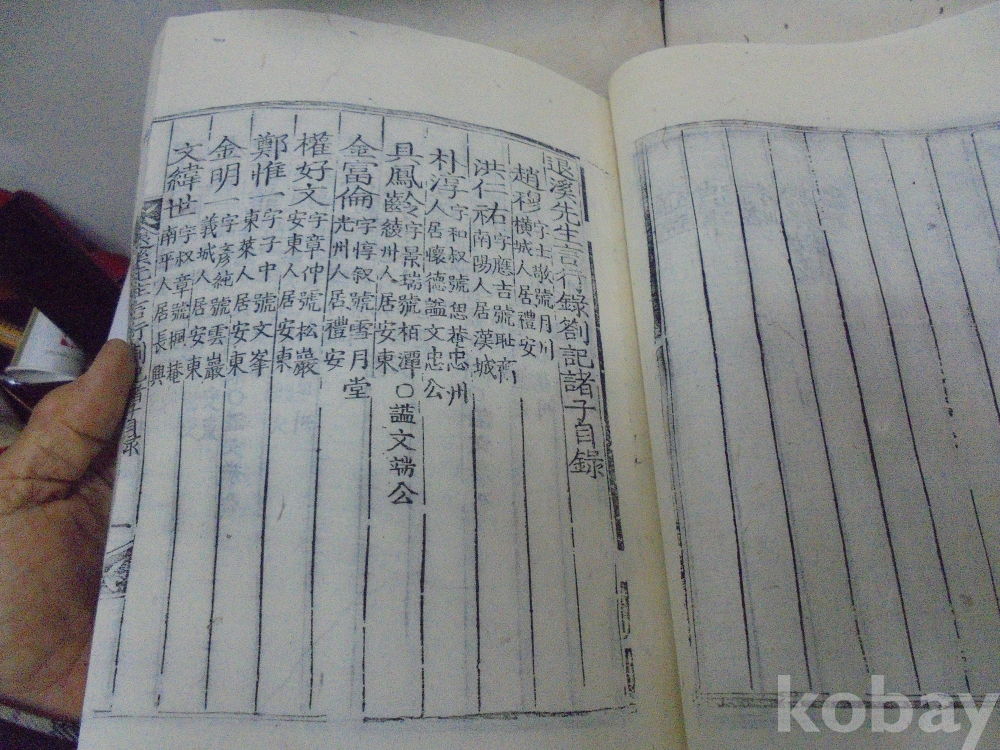 退溪先生言行錄劄記諸子目錄
趙穆 字士敬號月川
橫城人居禮安
洪仁祐 字應吉號耻齋
南陽人居漢城
朴淳 字和叔號思菴忠州
人居懷德謚文忠公
具鳳齡 字景瑞號栢潭○謚文端公
綾州人居安東
金富倫 字惇叙號雪月堂
光州人居禮安
權好文 字章仲號松巖
安東人居安東
鄭惟一 字子中號文峯
東萊人居安東
金明一 字彥純號雲巖
義城人居安東
文緯世 字叔章號楓菴
南平人居長興
kobay